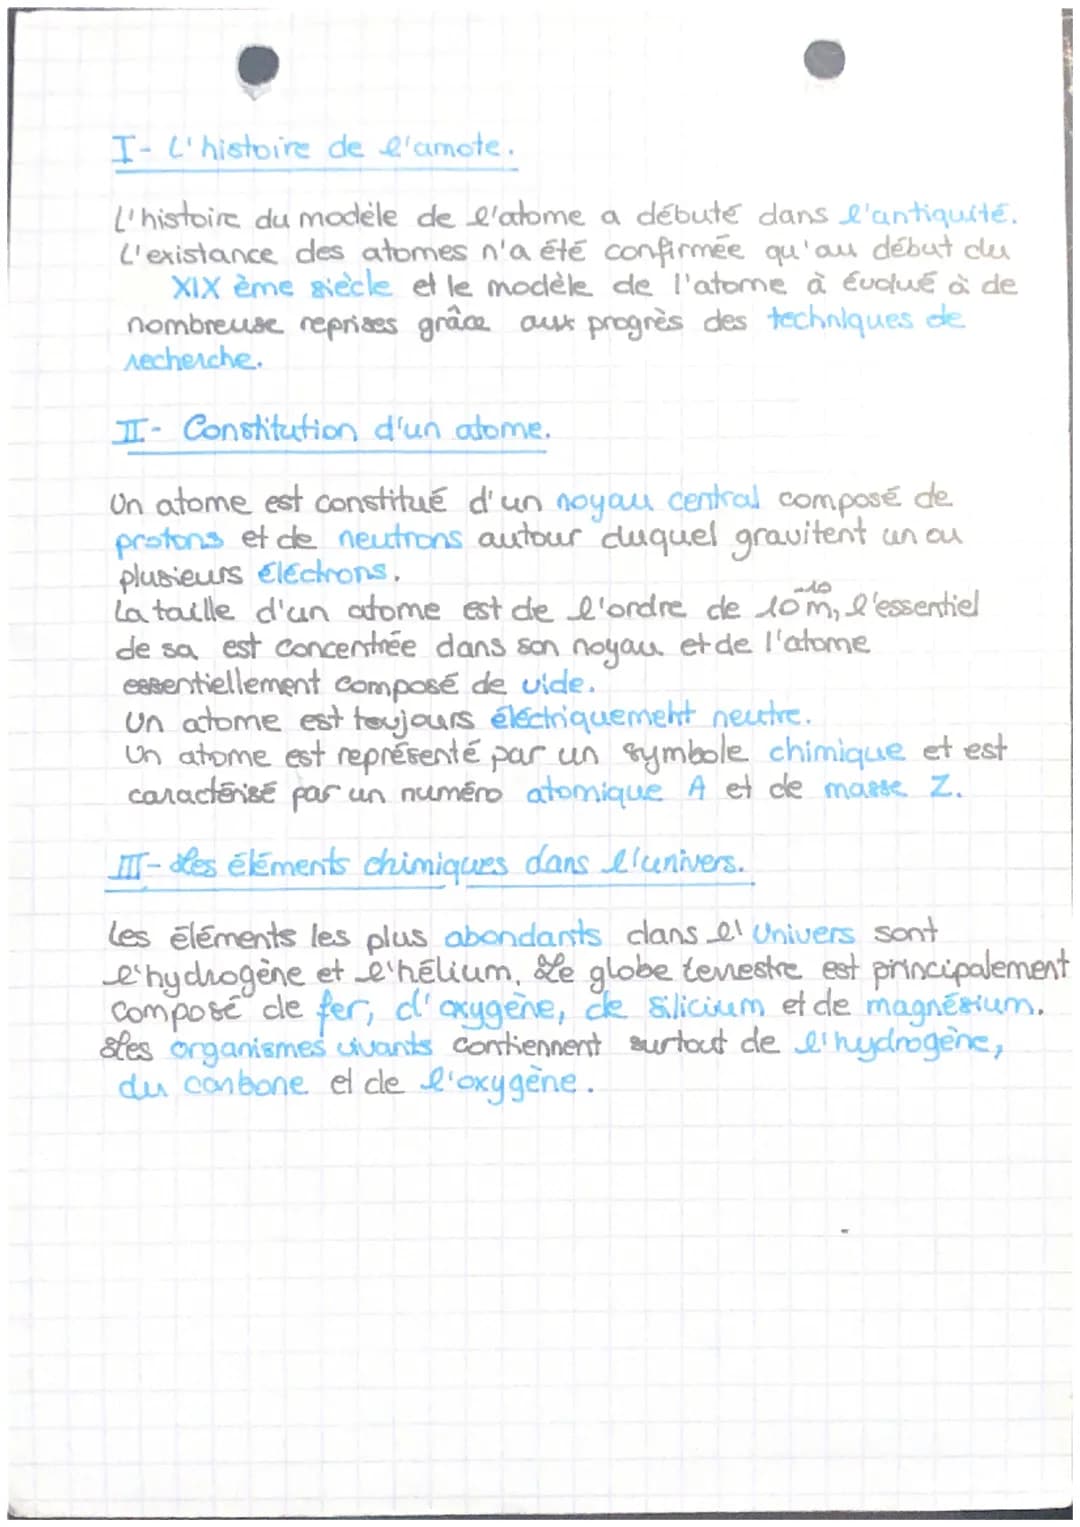 I- L'histoire de l'amote.
L'histoire du modèle de l'atome a débuté dans l'antiquité.
L'existance des atomes n'a été confirmée qu'au début du
XIX ème siècle et le modèle de l'atome à évolué à de
nombreuse reprises grâce aux progrès des techniques de
recherche.
II- Constitution d'un atome.
Un atome est constitué d'un noyau central composé de
protons et de neutrons autour duquel gravitent un ou
plusieurs éléctrons.
La taille d'un atome est de l'ordre de 10⁻¹⁰m, l'essentiel
de sa est concentrée dans son noyau et de l'atome
essentiellement composé de vide.
Un atome est toujours éléctriquement neutre.
Un atome est représenté par un symbole chimique et est
caractérisé par un numéro atomique A et de masse Z.
III- Les éléments chimiques dans l'univers.
Les éléments les plus abondants dans l'Univers sont
l'hydrogène et l'hélium. Le globe terrestre est principalement
composé de fer, d'oxygène, de silicium et de magnésium.
Les organismes vivants contiennent surtout de l'hydrogène,
du carbone et de l'oxygène.